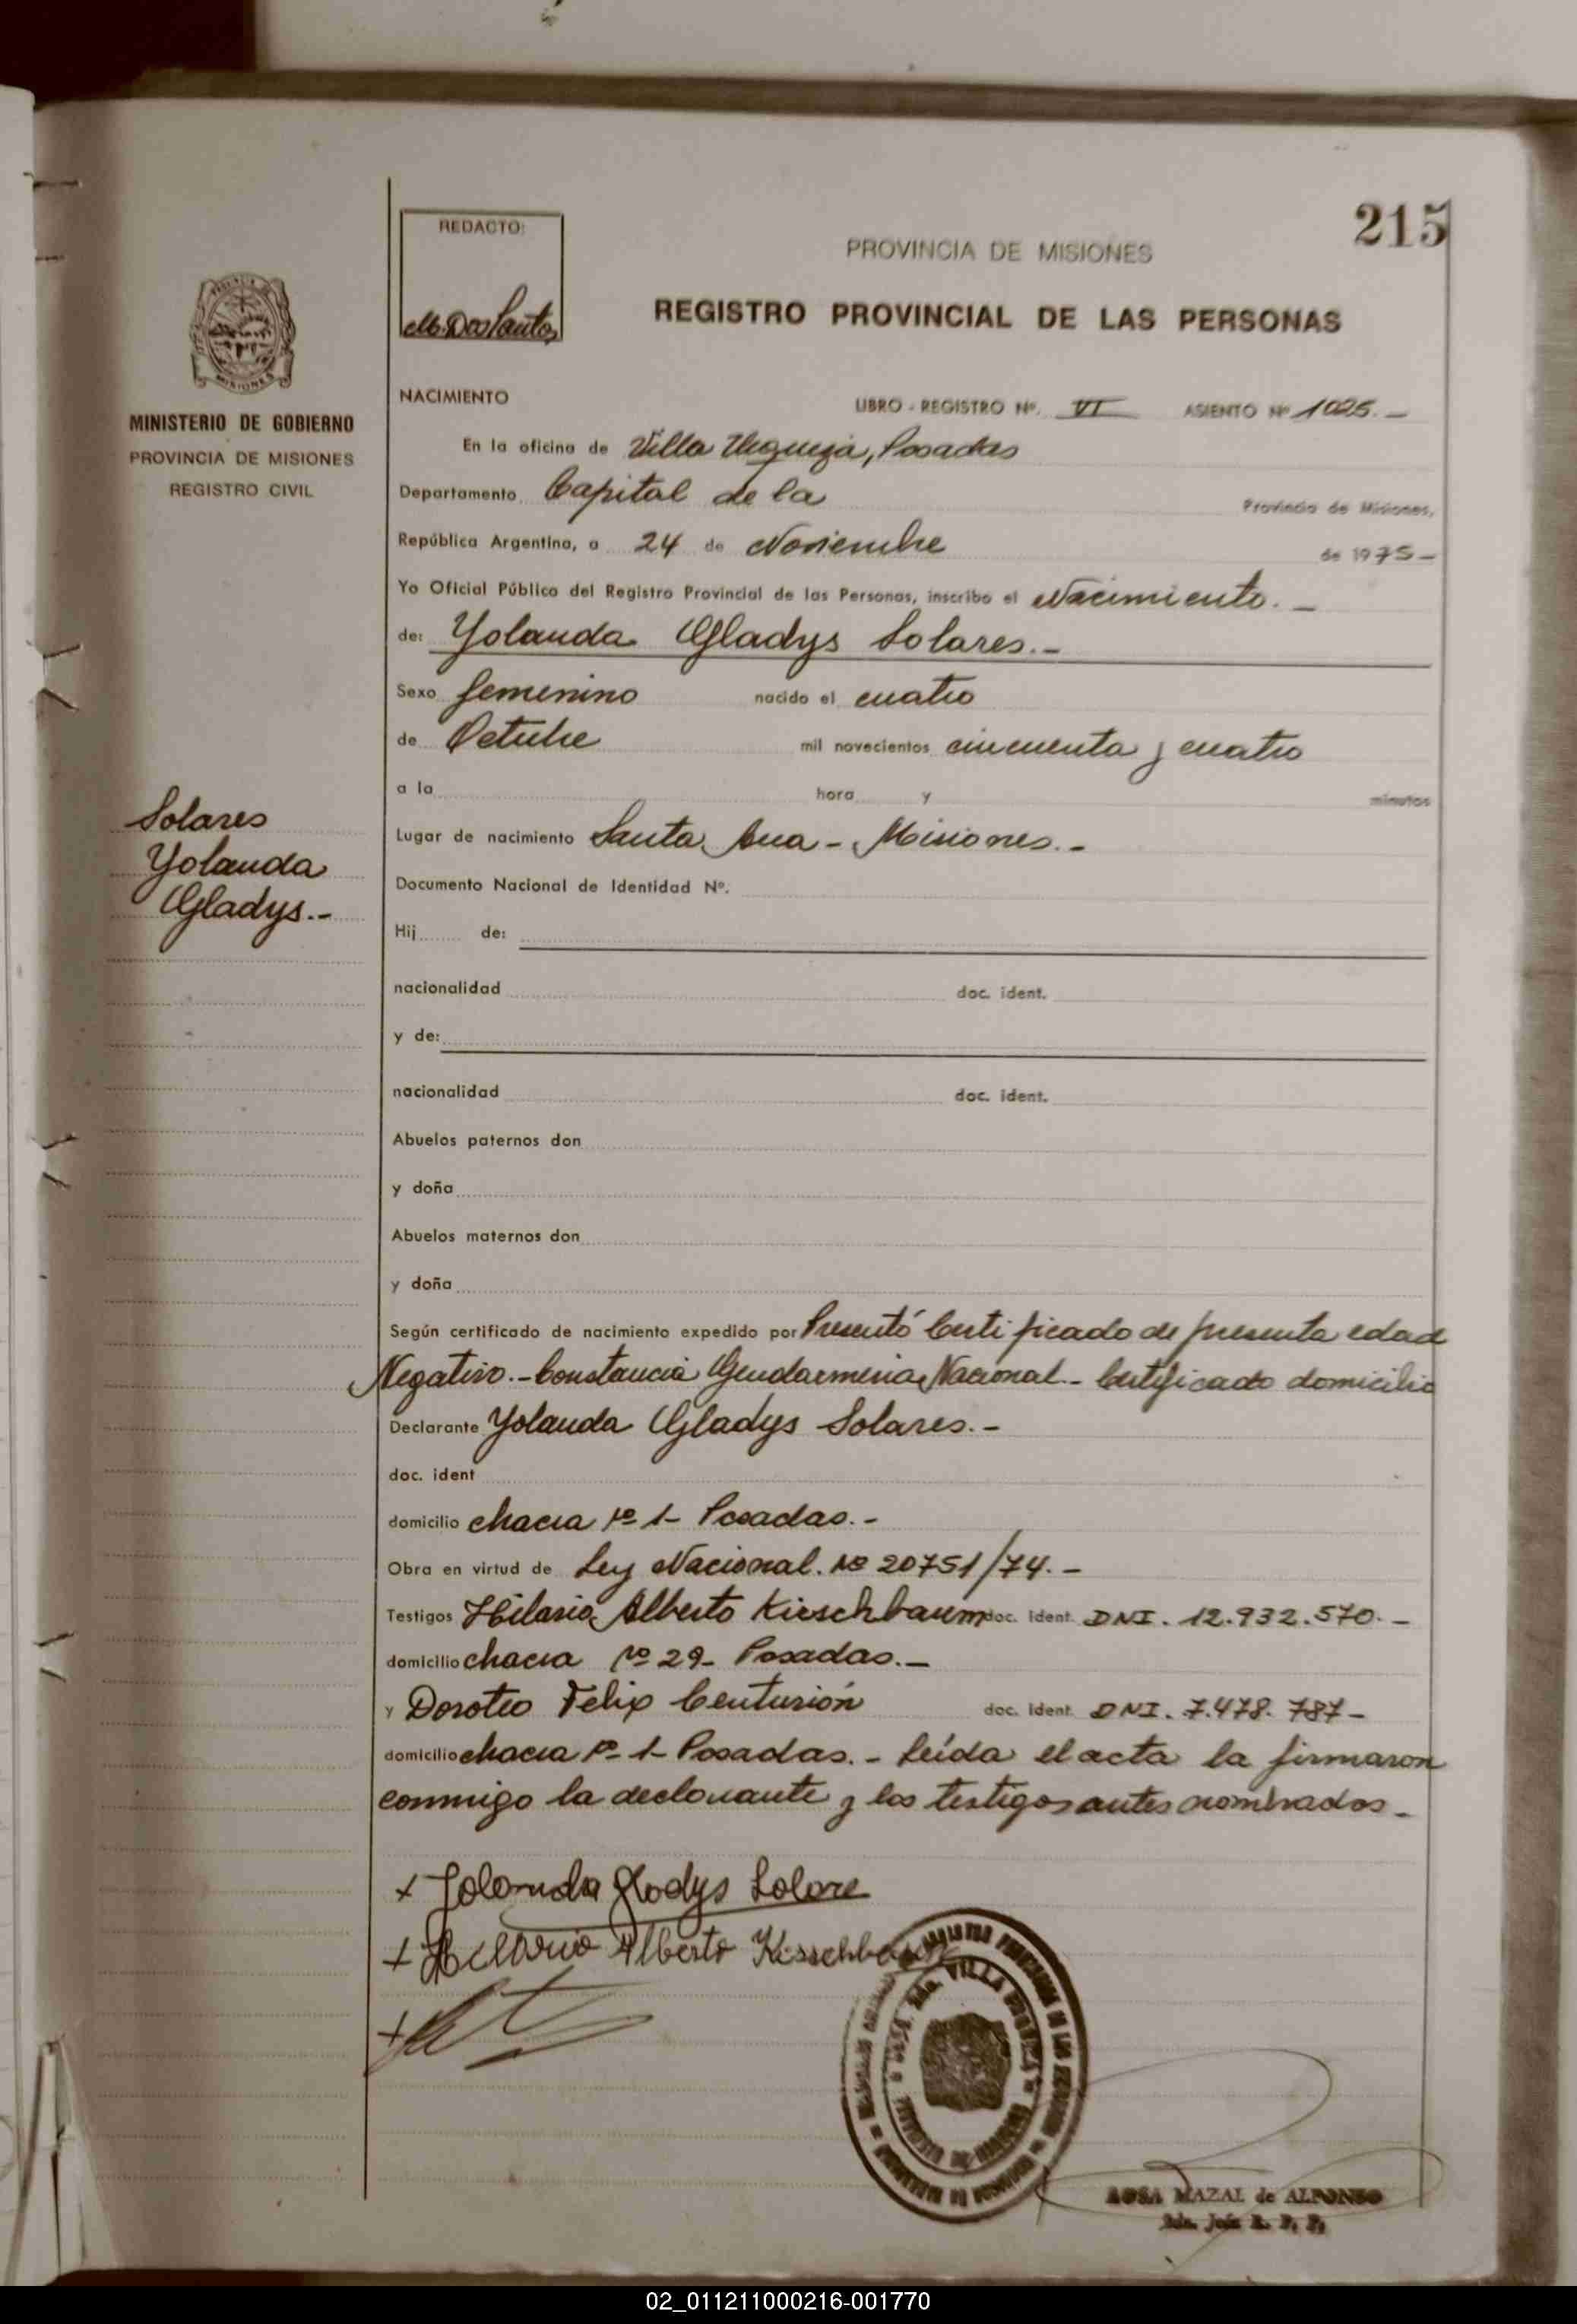 215
REDACTO:
M. Dos Santos
PROVINCIA DE MISIONES
REGISTRO PROVINCIAL DE LAS PERSONAS
MISIONES
MINISTERIO DE GOBIERNO
PROVINCIA DE MISIONES
REGISTRO CIVIL
NACIMIENTO LIBRO - REGISTRO Nº. VI ASIENTO Nº 1025.-
En la oficina de Villa Urquiza, Posadas
Departamento Capital de la Provincia de Misiones,
República Argentina, a 24 de Noviembre de 1975-
Yo Oficial Público del Registro Provincial de las Personas, inscribo el Nacimiento.-
de: Yolanda Gladys Solares.-
Sexo femenino nacido el cuatro
de Octubre mil novecientos cincuenta y cuatro
a la hora y minutos
Lugar de nacimiento Santa Ana - Misiones.-
Solares
Yolanda
Gladys.-
Documento Nacional de Identidad Nº.
Hij de:
nacionalidad doc. ident.
y de:
nacionalidad doc. ident.
Abuelos paternos don
y doña
Abuelos maternos don
y doña
Según certificado de nacimiento expedido por Presentó Certificado de presunta edad
Negativo.- Constancia Gendarmeria Nacional - Certificado domicilio
Declarante Yolanda Gladys Solares.-
doc. ident
domicilio chacra Nº 1- Posadas.-
Obra en virtud de Ley Nacional. Nº 20751/74.-
Testigos Hilario Alberto Kirschbaum doc. ident. DNI. 12.932.570.-
domicilio chacra Nº 29- Posadas.-
y Doroteo Felix Centurión doc. ident. DNI. 7.478.787-
domicilio chacra Nº 1- Posadas.- Leída el acta la firmaron
conmigo la declarante y los testigos antes nombrados-
x Yolanda Gladys Solare
+ Hilario Alberto Kirschbaum
VILLA URQUIZA
ROSA MAZAL de ALFONSO
02_011211000216-001770